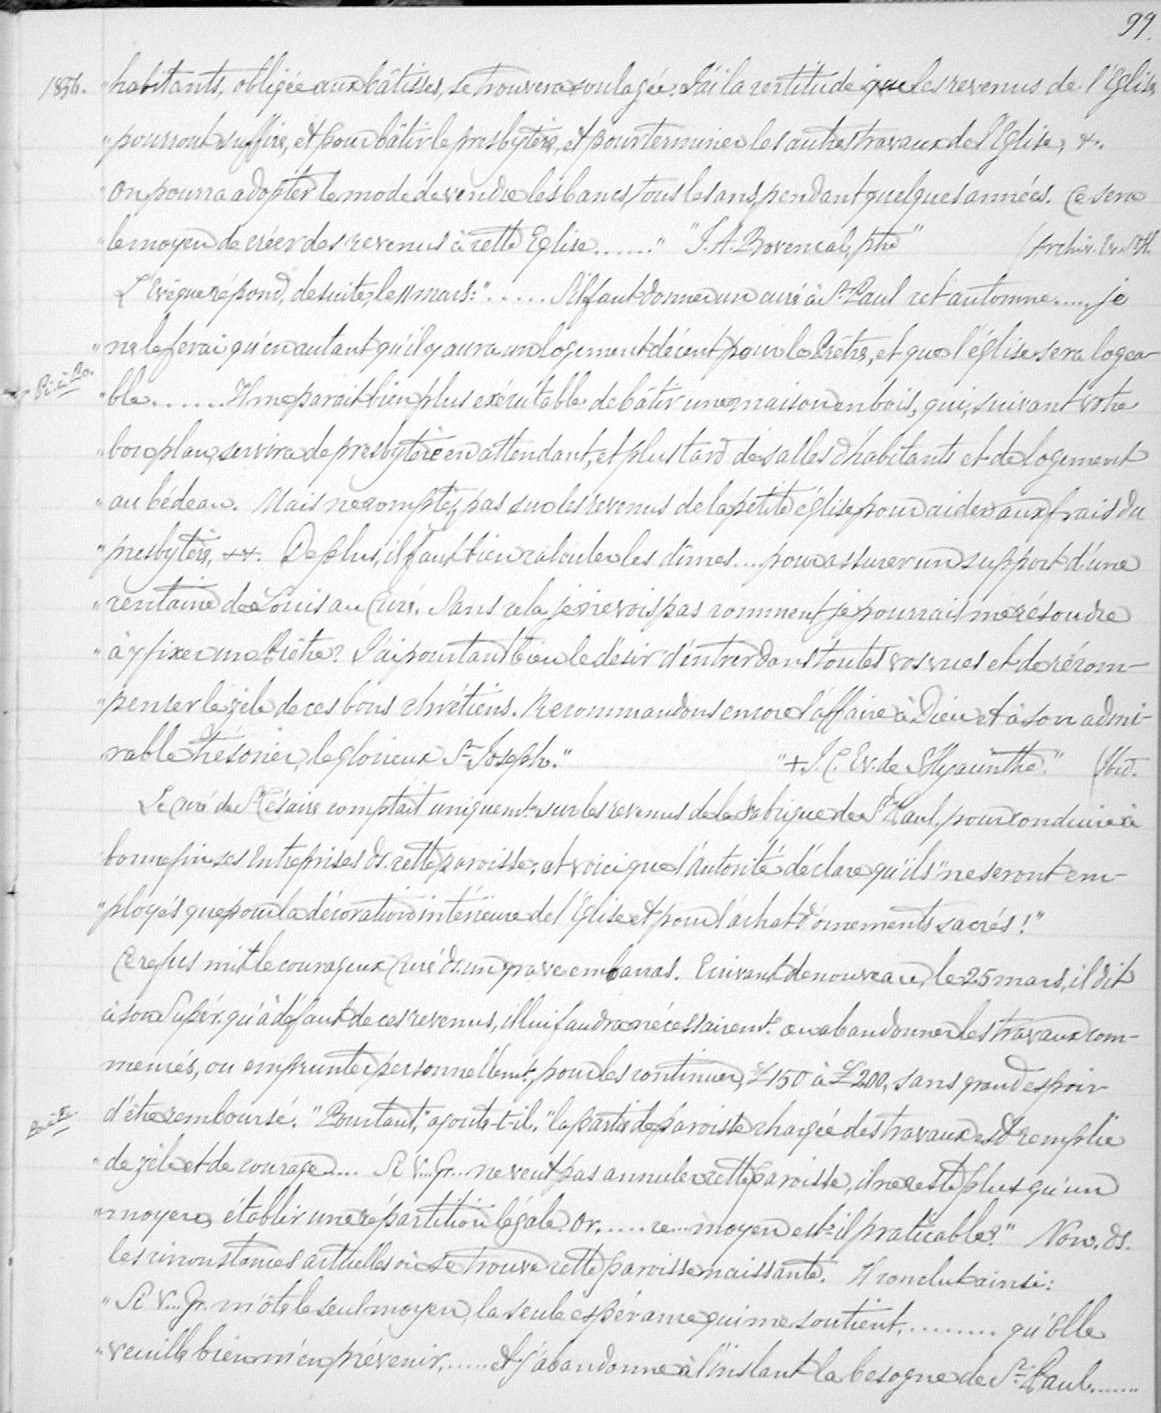 99.
1856. "habitants, obligée aux bâtisses, se trouvera soulagée. J'ai la certitude que les revenus de l'Eglise
"pourront suffire, et pour bâtir le presbytère, et pour terminer les autres travaux de l'Eglise, &.
"On pourra adopter le mode de vendre les bancs, tous les ans, pendant quelques années. Ce sera
"le moyen de créer des revenus à cette Eglise......" "J. A. Provencal, ptre" (Archiv. Ev. St H.
L'Evêque répond, de suite, le 11 mars: "..... S'il faut donner un curé à St Paul cet automne....., je
"ne le ferai qu'en autant qu'il y aura un logement décent pour le Prêtre, et que l'église sera logea-
"ble....... Il me parait bien plus exécutable de bâtir une maison en bois, qui, suivant votre
"bon plan, servira de presbytère en attendant, et plus tard de salles d'habitants et de logement
"au bédeau. Mais ne comptez pas sur les revenus de la petite église pour aider aux frais du
"presbytère, &&. De plus, il faut bien calculer les dîmes.... pour assurer un support d'une
"centaine de Louis au Curé. Sans cela je ne vois pas comment je pourrais me résoudre
"à y fixer un Prêtre? J'ai pourtant bien le désir d'entrer dans toutes vos vues et de récom-
"penser le zèle de ces bons chrétiens. Recommandons encore l'affaire à Dieu et à son admi-
"rable Trésorier, le glorieux St Joseph." "+ J. C. Ev. de St Hyacinthe." (Ibid.
Le curé de St Césaire comptait uniquemt sur les revenus de la Fabrique de St Paul, pour conduire à
bonne fin ses entreprises ds. cette paroisse; et voici que l'autorité déclare qu'ils "ne seront em-
"ployés que pour la décoration intérieure de l'Eglise et pour l'achat d'ornements sacrés!"
Ce refus mit le courageux Curé ds. un grave embarras. Ecrivant de nouveau, le 25 mars, il dit
à son Supér. qu'à défaut de ces revenus, il lui faudra nécessairemt. ou abandonner les travaux com-
mencés, ou emprunter personnellemt, pour les continuer, £150 à £200, sans grand espoir
d'être remboursé. "Pourtant," ajoute-t-il, "la partie de paroisse chargée des travaux est remplie
"de zèle et de courage.... Si V... Gr... ne veut pas annuler cette paroisse, il ne reste plus qu'un
"moyen, établir une répartition légale. Or..... ce.... moyen est-il praticable?" Non, ds.
les circonstances actuelles où se trouve cette paroisse naissante. Il conclut ainsi:
"Si V... Gr. m'ôte le seul moyen, la seule espérance qui me soutient,......... qu'Elle
"veuille bien m'en prévenir,...... et j'abandonne à l'instant la besogne de St Paul.......